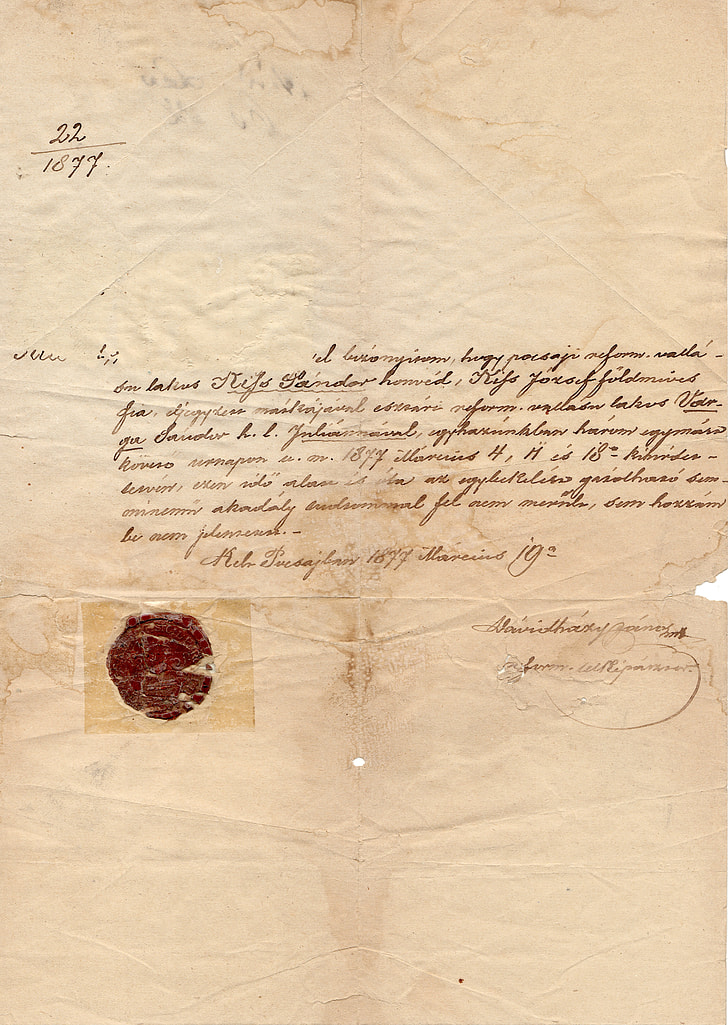 22
1877.
bizonyitom, hogy pocsaji reform. vallá-
su lakos Kiss Sándor honvéd, Kiss József földmives
fia, eljegyzett mátkájával esztári reform. vallásu lakos Var-
ga Sándor h. l. Juliánnával, egyházunkban három egymást
követő ürnapon u. m. 1877 Március 4, 11 és 18án kihirdet-
tetvén, ezen idő alatt és óta az egybekelést gátolható sem-
minemű akadály tudtommal fel nem merült, sem hozzám
be nem jelentetett. -
Kelt Pocsajban 1877 Március 19én
Dávidházy János mk
reform. lelkipásztor.